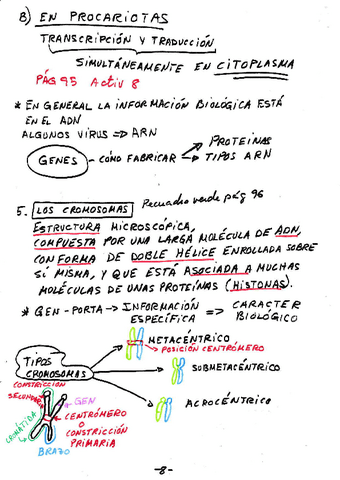 B) EN PROCARIOTAS
TRANSCRIPCIÓN Y TRADUCCIÓN
SIMULTÁNEAMENTE EN CITOPLASMA
PÁG 95 ACTIV 8
* EN GENERAL LA INFORMACIÓN BIOLÓGICA ESTÁ
EN EL ADN
ALGUNOS VIRUS => ARN
GENES - CÓMO FABRICAR
PROTEINAS
TIPOS ARN
5. LOS CROMOSOMAS Recuadro verde pág 96
ESTRUCTURA MICROSCÓPICA,
COMPUESTA POR UNA LARGA MOLÉCULA DE ADN,
CON FORMA DE DOBLE HÉLICE ENROLLADA SOBRE
SÍ MISMA, Y QUE ESTÁ ASOCIADA A MUCHAS
MOLÉCULAS DE UNAS PROTEÍNAS (HISTONAS).
* GEN - PORTA -> INFORMACIÓN ESPECÍFICA => CARACTER BIOLÓGICO
TIPOS CROMOSOMAS
METACÉNTRICO
POSICIÓN CENTRÓMERO
SUBMETACÉNTRICO
ACROCÉNTRICO
CONSTRICCIÓN
SECUNDARIA
GEN
CENTRÓMERO
O
CONSTRICCIÓN
PRIMARIA
CROMÁTIDA
BRAZO
-8-